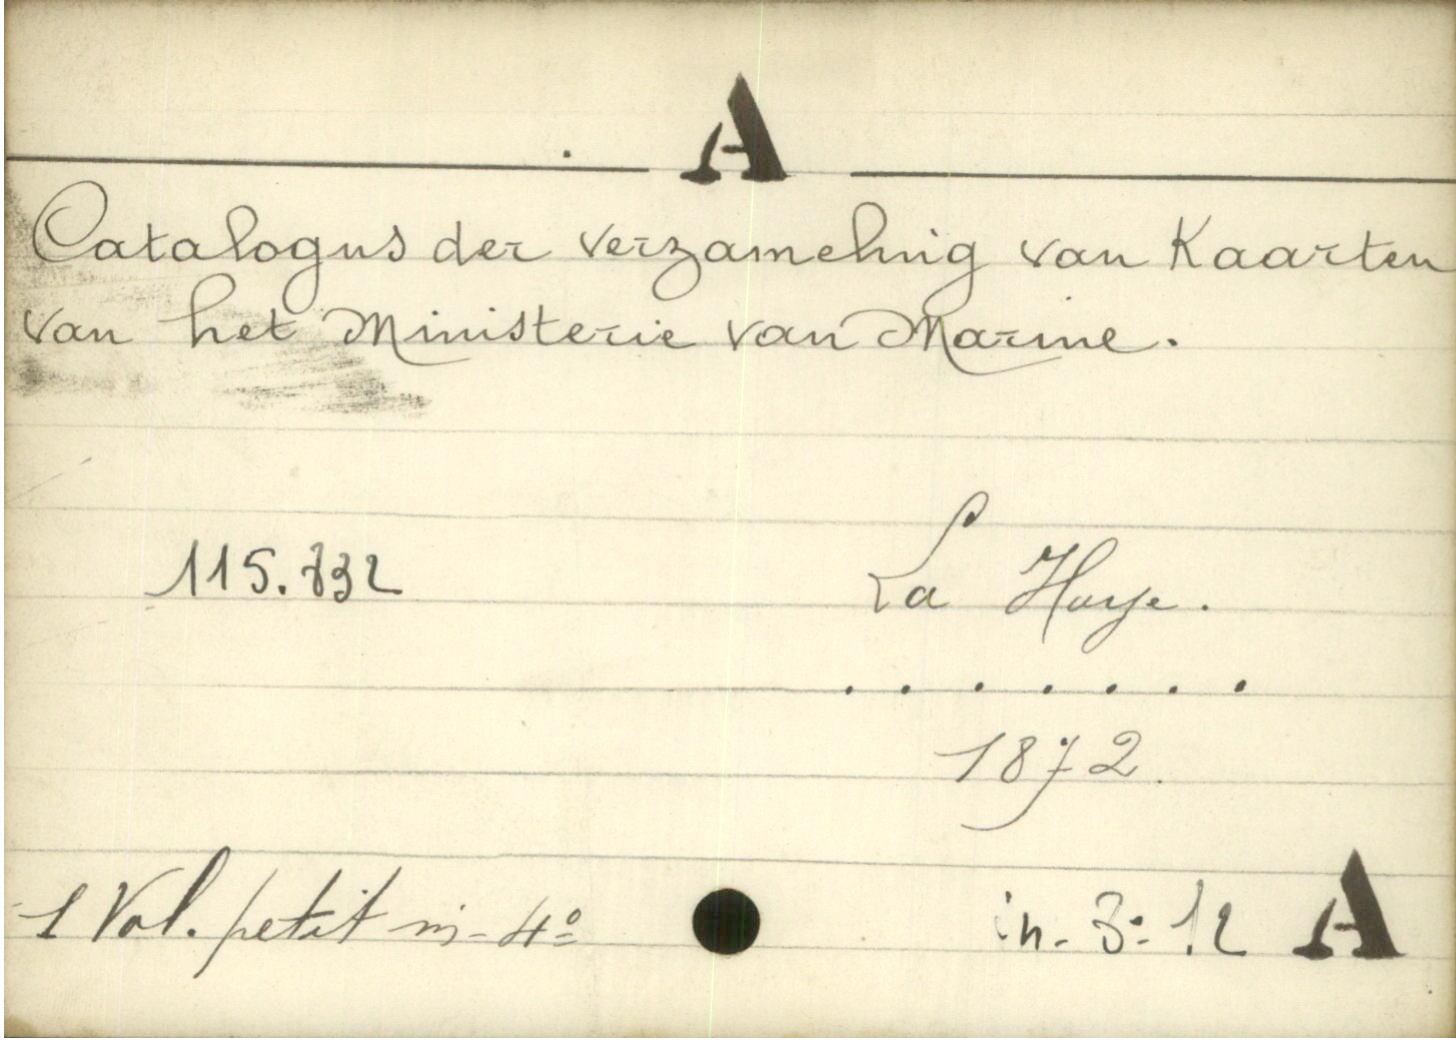 A
Catalogus der verzameling van Kaarten
van het Ministerie van Marine.
115.832
La Haye.
. . . . . . .
1872.
1 Vol. petit in-4º
in-3º 12 A